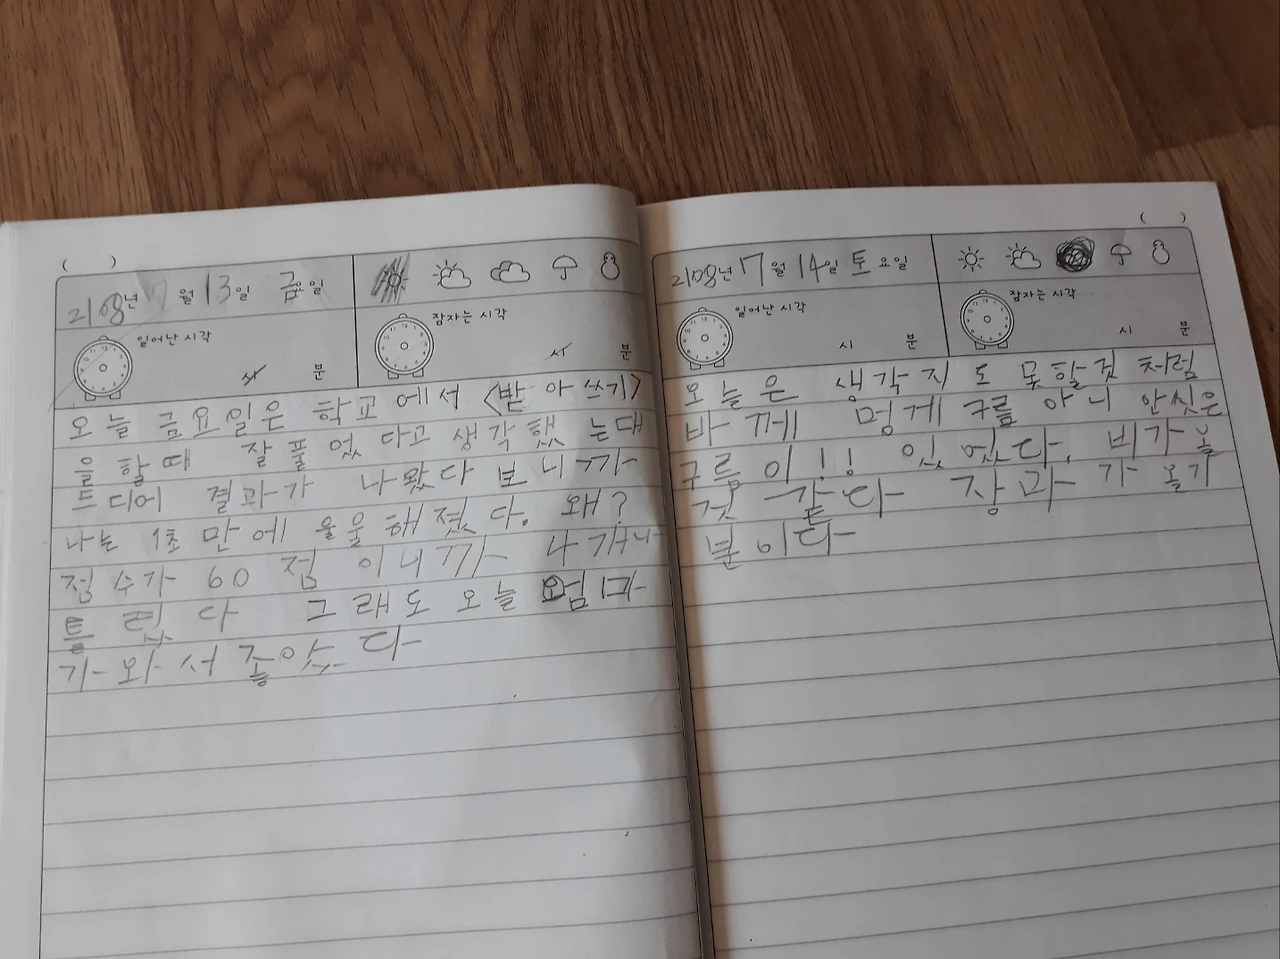 ( )
2108년 7월 13일 금요일
일어난 시각
시 분
잠자는 시각
시 분
오늘 금요일은 학교에서 <받아쓰기>
을 할때 잘 풀었다고 생각했는대
드디어 결과가 나왔다 보니까
나는 1초만에 우울해졌다. 왜?
점수가 60점이니까 4개나
틀렸다 그래도 오늘 엄마
가 와서 좋았다
( )
2108년 7월 14일 토요일
일어난 시각
시 분
잠자는 시각
시 분
오늘은 생각지도 못할것 처럼
바께 멍게구름 아니 안씻은
구름이!! 있었다. 비가 올
것 같다 장마가 올기
분이다